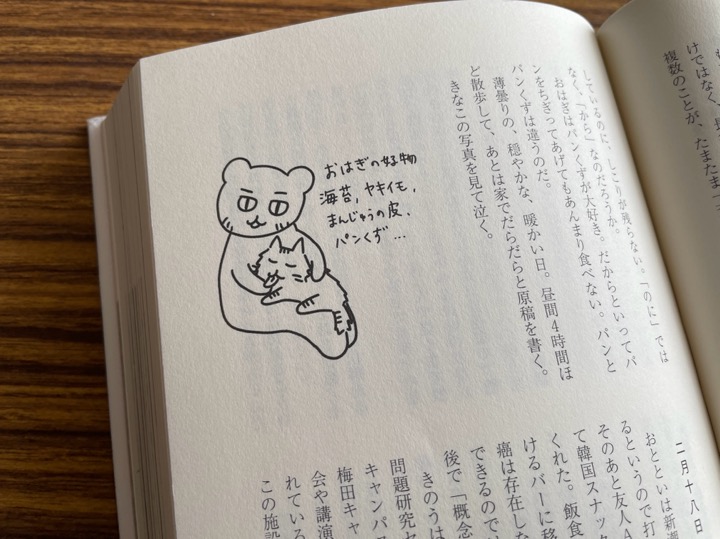 けではなく、
複数のことが、たまたま一
しているのに、しこりが残らない。「のに」では
なく、「から」なのだろうか。
おはぎはパンくずが大好き。だからといってパ
ンをちぎってあげてもあんまり食べない。パンと
パンくずは違うのだ。
薄曇りの、穏やかな、暖かい日。昼間4時間ほ
ど散歩して、あとは家でだらだらと原稿を書く。
きなこの写真を見て泣く。
おはぎの好物
海苔,ヤキイモ,
まんじゅうの皮、
パンくず…
二月十八日
おとといは新潮
るというので打
そのあと友人A
て韓国スナック
くれた。飯食
けるバーに移
癌は存在した
できるので
後で「概念
きのうは
問題研究セ
キャンパス
梅田キャ
会や講演
れている
この施設